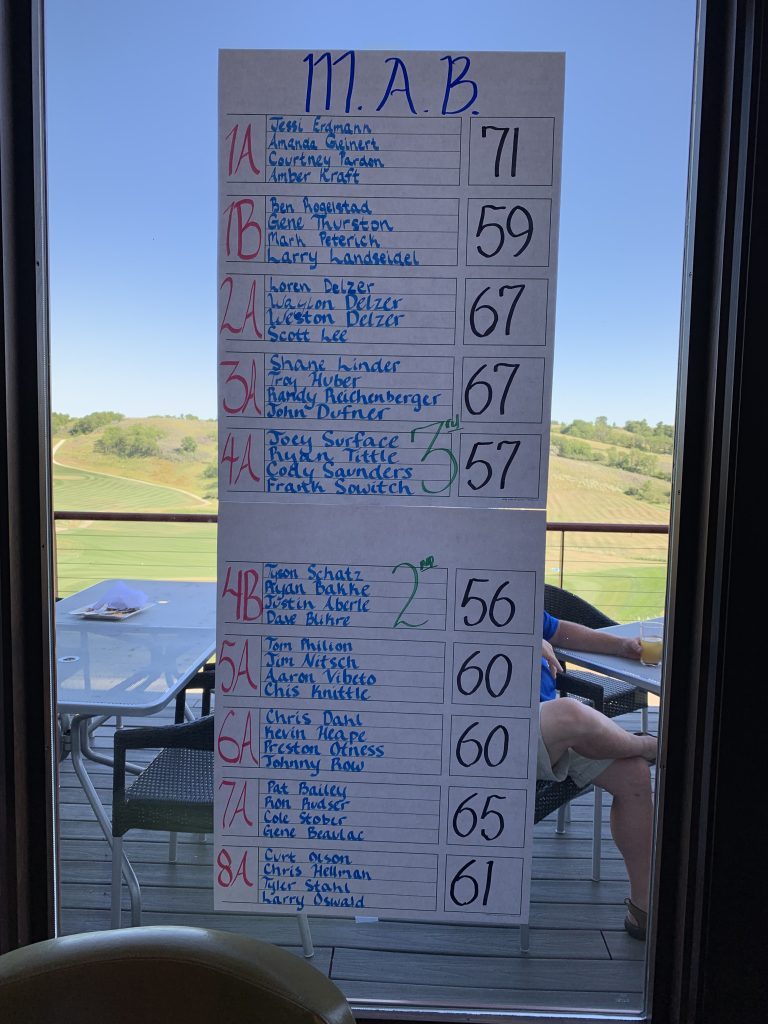 M.A.B.
1A
Jessi Erdmann
Amanda Greinert
Courtney Pardon
Amber Kraft
71
1B
Ben Rogelstad
Gene Thurston
Mark Peterich
Larry Landseidel
59
2A
Loren Delzer
Waylon Delzer
Weston Delzer
Scott Lee
67
3A
Shane Linder
Troy Huber
Randy Reichenberger
John Dufner
67
4A
Joey Surface
Ryan Tittle
Cody Saunders
Frank Sowitch
3rd
57
4B
Tyson Schatz
Ryan Bakke
Justin Aberle
Dave Blikre
2nd
56
5A
Tom Philion
Jim Nitsch
Aaron Vibeto
Chis Knittle
60
6A
Chris Dahl
Kevin Heape
Preston Otness
Johnny Row
60
7A
Pat Bailey
Ron Rudser
Cole Stober
Gene Beaulac
65
8A
Curt Olson
Chris Hellman
Tyler Stahl
Larry Oswald
61